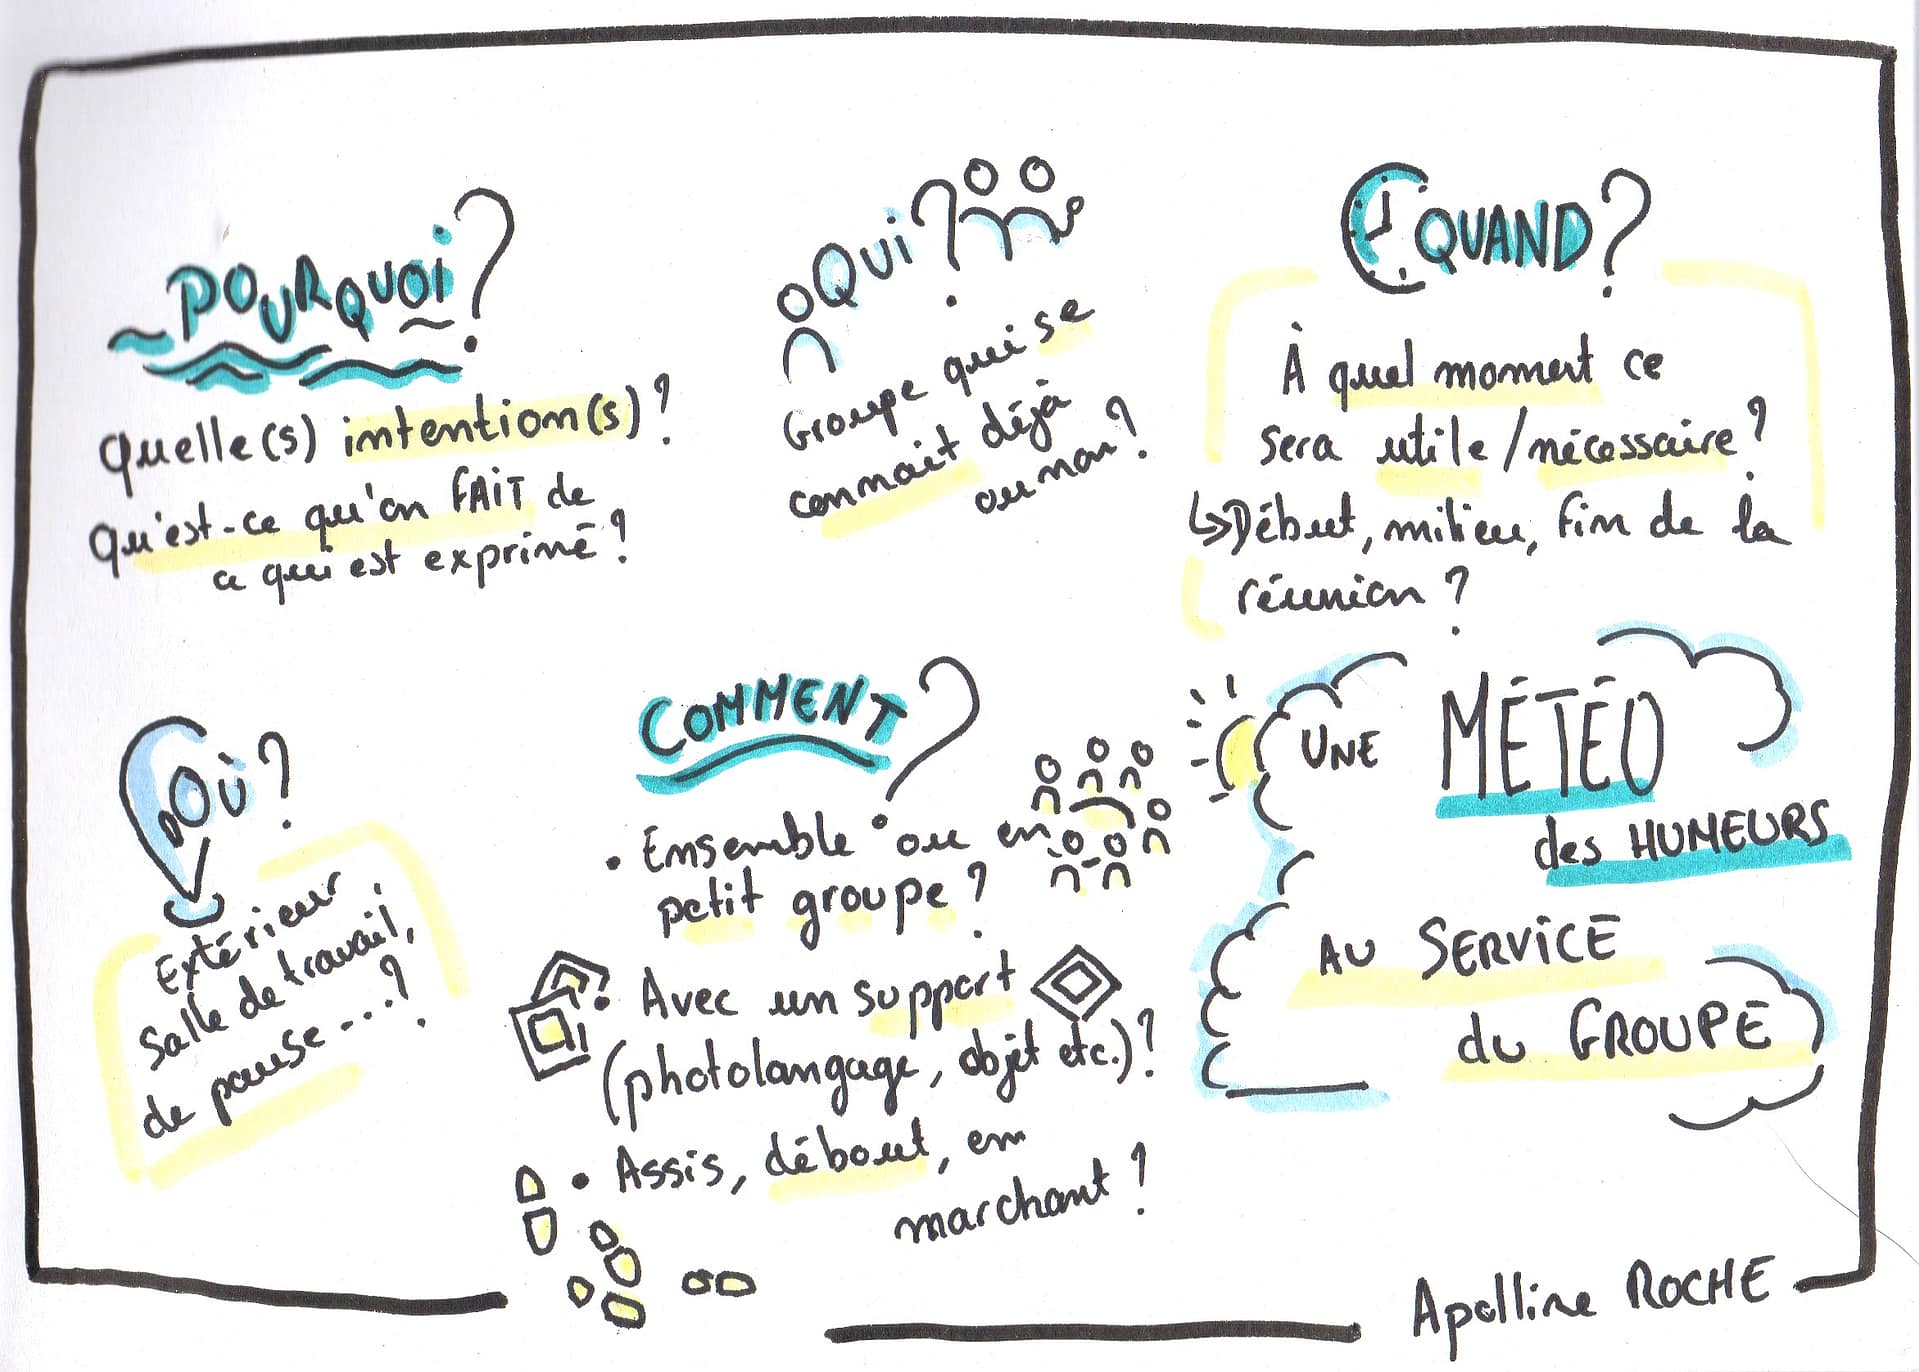 POURQUOI ?
Quelle(s) intention(s) ?
Qu'est-ce qu'on FAIT de
ce qui est exprimé ?
QUI ?
Groupe qui se
connait déjà
ou non ?
QUAND ?
À quel moment ce
sera utile / nécessaire ?
↳ Début, milieu, fin de la
réunion ?
OÙ ?
Extérieur
Salle de travail,
de pause... ?
COMMENT ?
• Ensemble ou en
petit groupe ?
Avec un support
(photolangage, objet etc.) ?
• Assis, débout, en
marchant ?
UNE MÉTÉO
des HUMEURS
AU SERVICE
du GROUPE
Apolline ROCHE